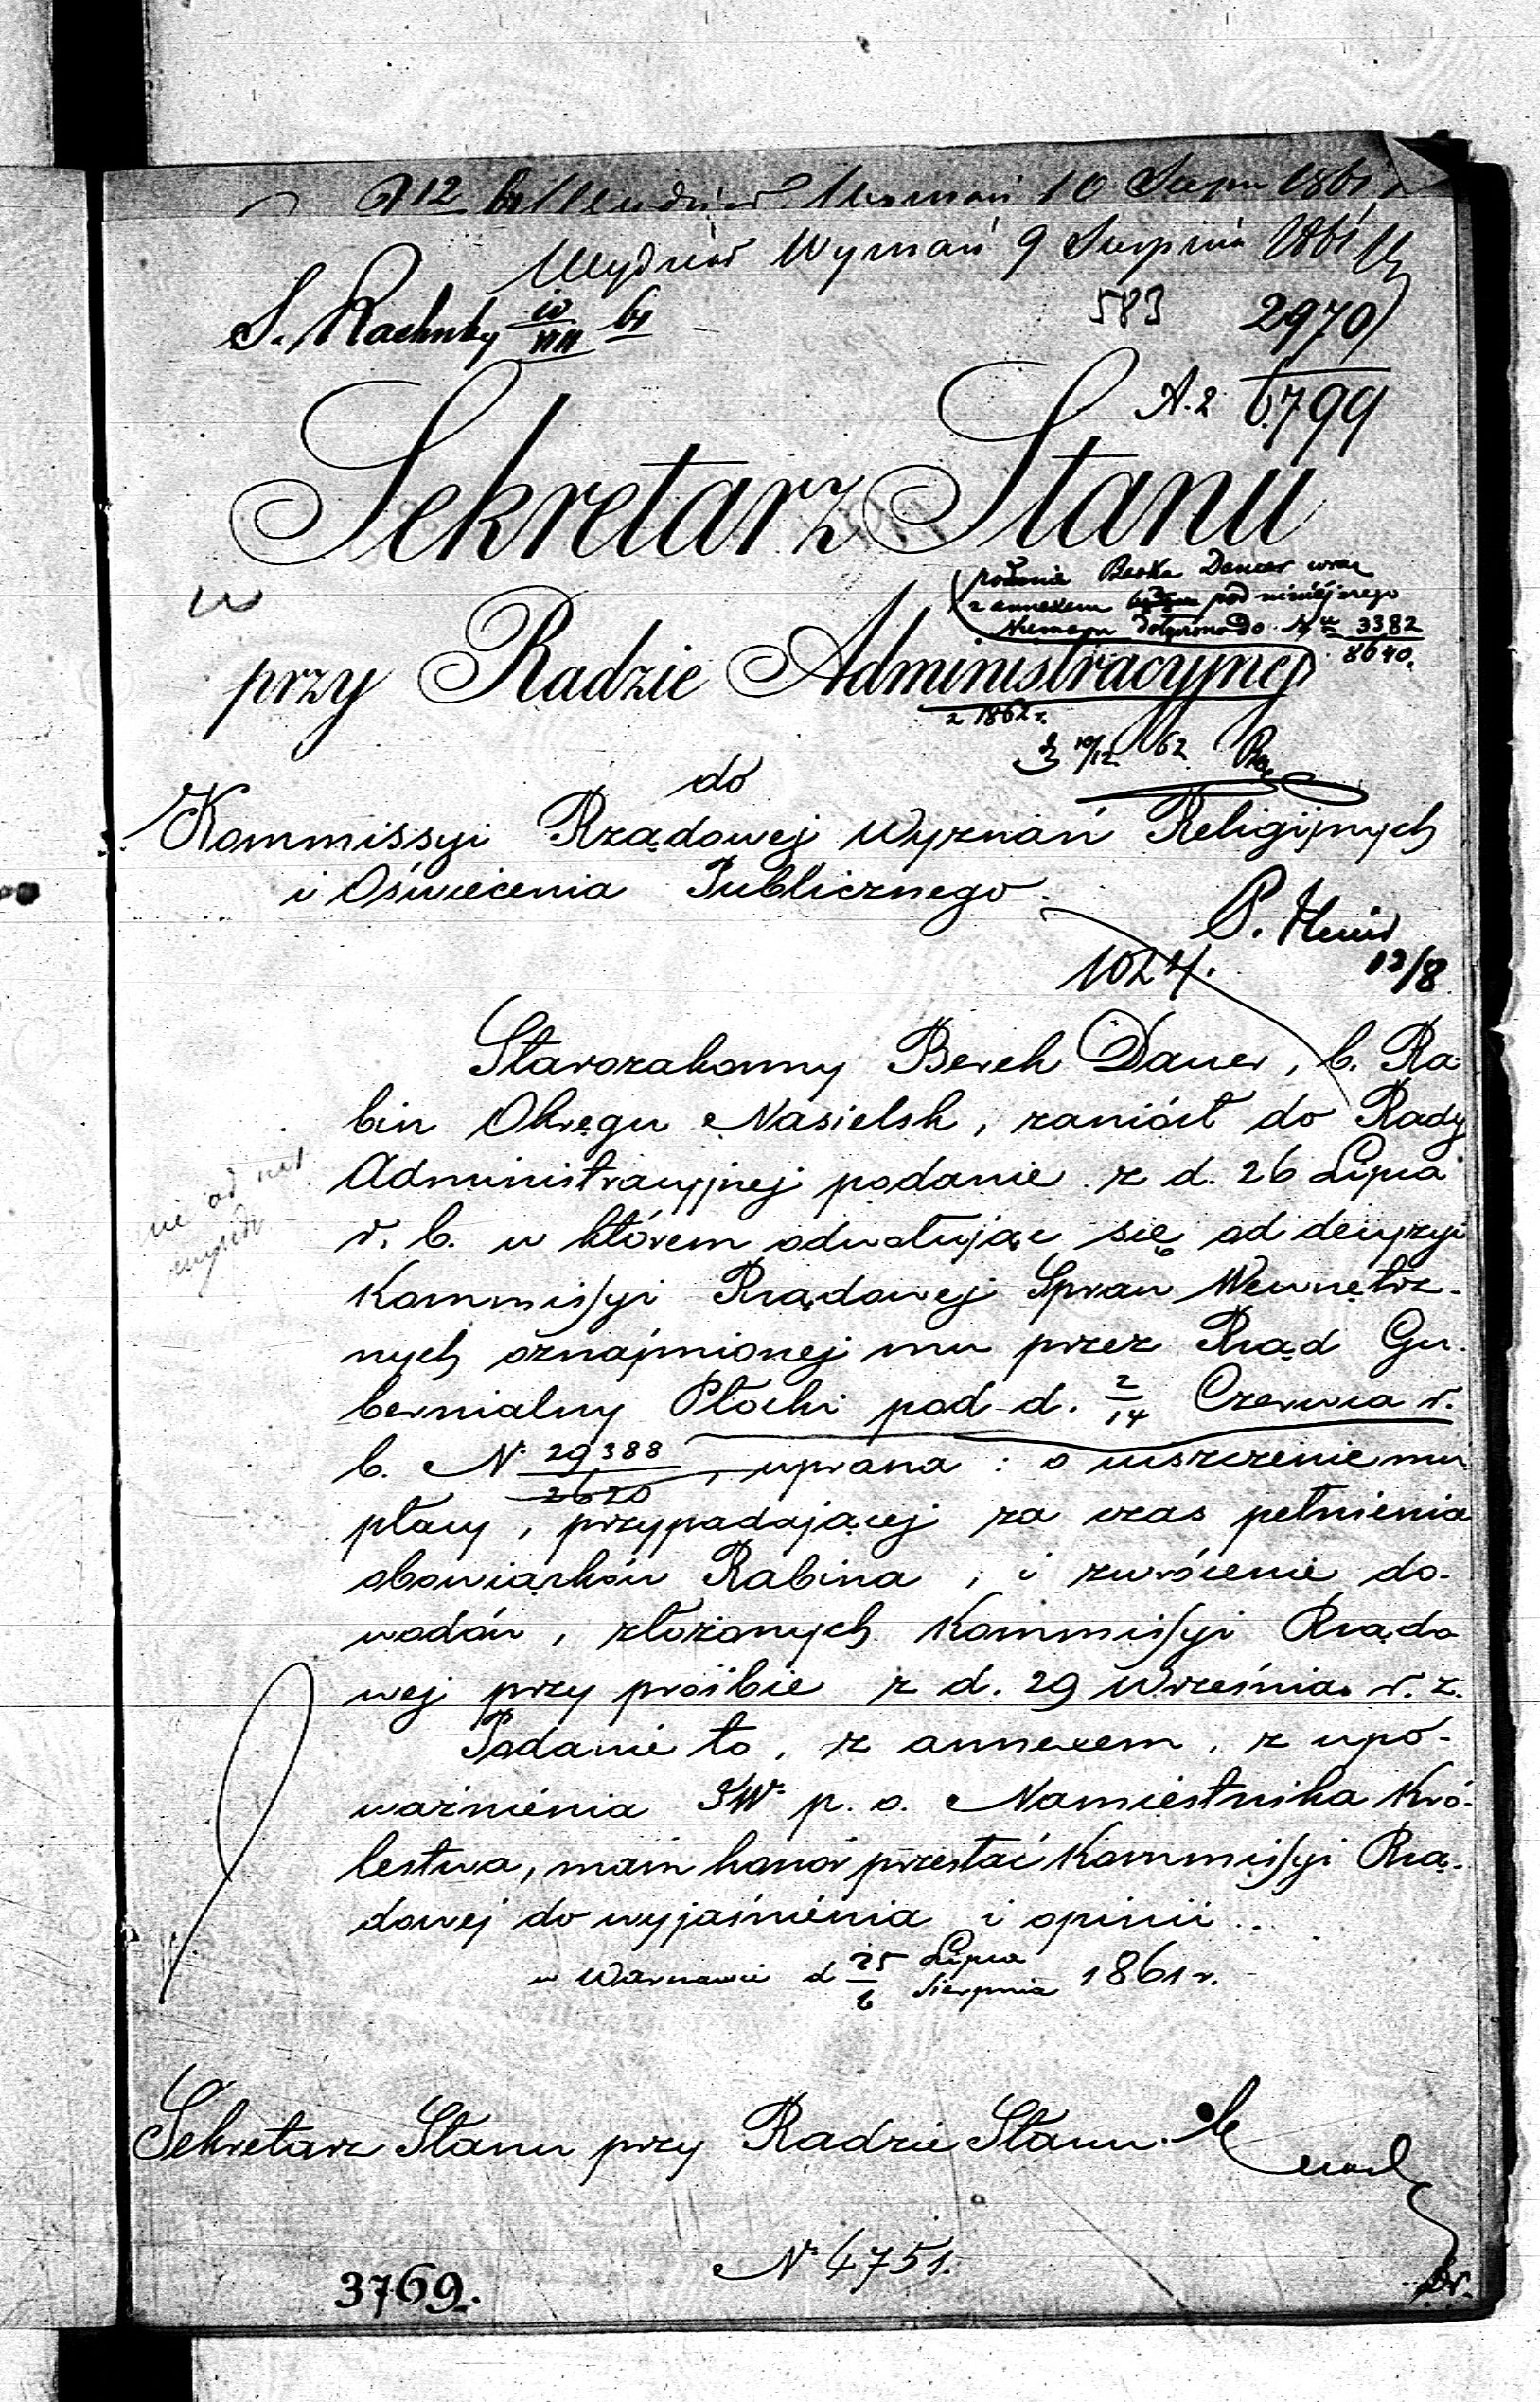 10 Sierpn 1861
Wydział Wyznań 9 Sierpnia 1861
583 2970
A. 2 6799
Sekretarz Stanu
podanie Berka Dancer wraz
z annexem pod niniejszego
Numeru dołączono do N 3382
8640.
przy Radzie Administracyjnej
z 1862 r.
10/12 62
do
Kommissyi Rządowej Wyznań Religijnych
i Oświecenia Publicznego.
P.
1024. 12/8
Starozakonny Berek Dauer, b. Ra-
bin Okręgu Nasielsk, zaniósł do Rady
Administracyjnej podanie z d. 26 Lipca
r. b. w którem odwołując się od decyzyi
Kommissyi Rządowej Spraw Wewnętrz-
nych oznajmionej mu przez Rząd Gu-
bernialny Płocki pod d. 2/14 Czerwca r.
b. N. 29388/2620, uprasza: o uiszczenie mu
płacy, przypadającej za czas pełnienia
obowiązków Rabina, i zwrócenie do-
wodów, złożonych Kommissyi Rządo
wej przy prośbie z d. 29 Września r. z.
Podanie to, z annexem, z upo-
ważnienia JW. p. o. Namiestnika Kró-
lestwa, mam honor przesłać Kommissyi Rzą-
dowej do wyjaśnienia i opinii..
w Warszawie d 25/6 Lipca/Sierpnia 1861 r.
Sekretarz Stanu przy Radzie Stanu.
N. 4751.
3769.